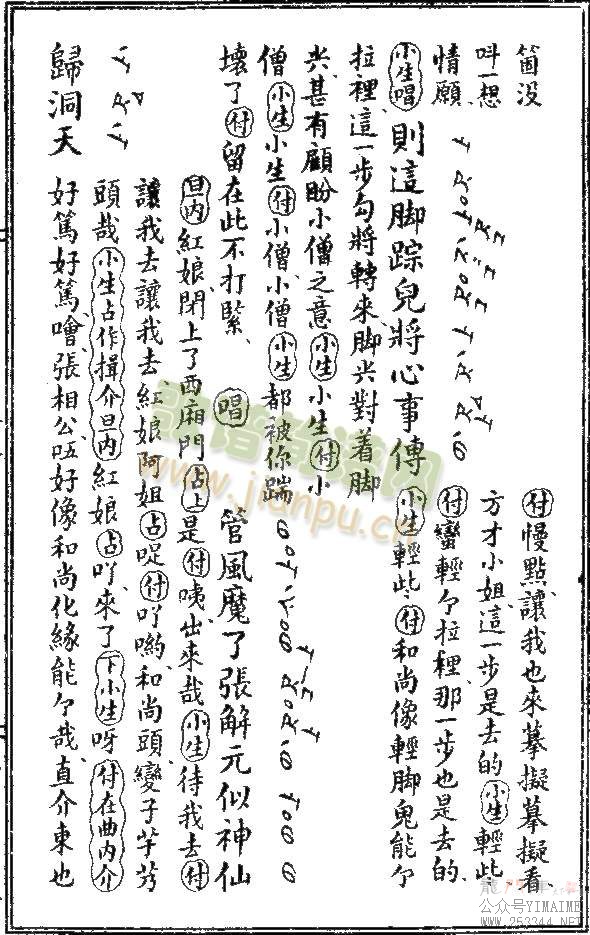 箇没
叫一想
情願
付慢點讓我也來摹擬摹擬看
方才小姐這一步是去的小生輕些
付蠻輕个拉裡那一步也是去的
小生唱則這脚踪兒將心事傳
小生輕些付和尚像輕脚鬼能个
拉裡這一步勾將轉來脚尖對着脚
尖甚有顧盼小僧之意小生小生付小
僧小生小生付小僧小僧小生都被你踹
壞了付留在此不打緊
唱管風魔了張解元似神仙
歸洞天
旦内紅娘閉上了西廂門占上是付咦出來哉小生待我去付
讓我去讓我去紅娘阿姐占啐付吖喲和尚頭變子芋艿
頭哉小生占作揖介旦内紅娘占吖來了下小生呀付在曲内介
好篤好篤噲張相公唔好像和尚化緣能个哉直介東也
歌譜簡譜网
www.jianpu.cn
公众号YIMAIME
www.253344.NET